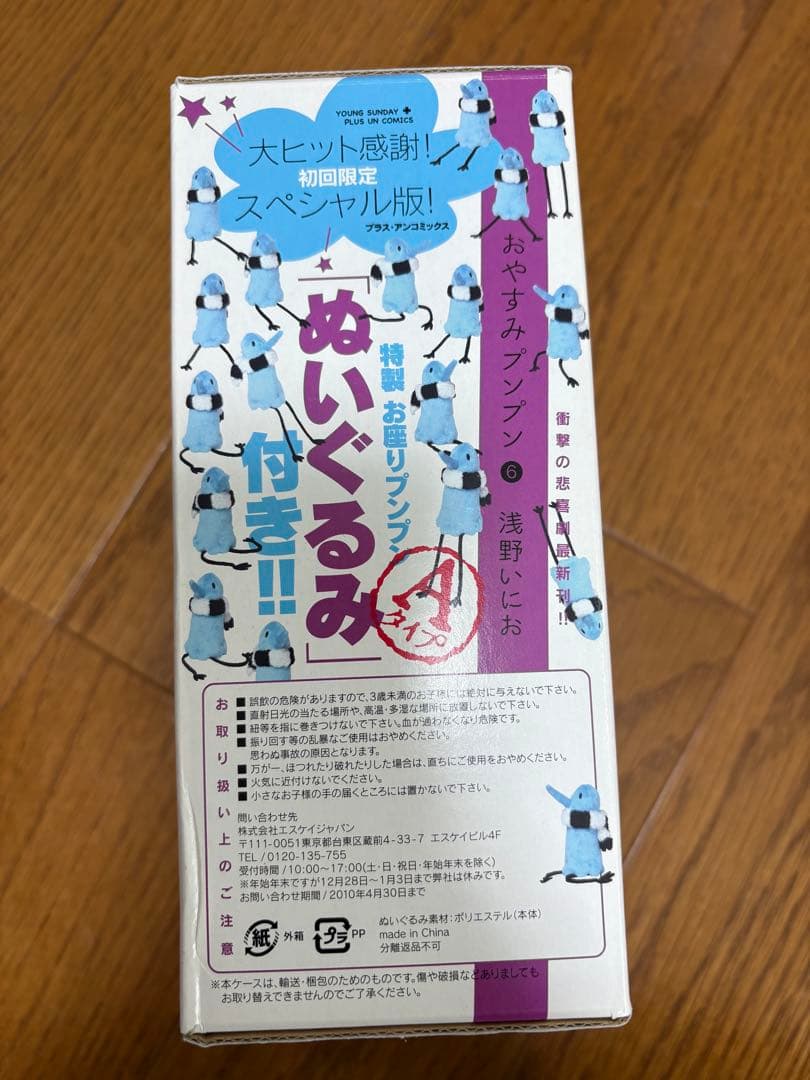 YOUNG SUNDAY +
PLUS UN COMICS
大ヒット感謝!
初回限定
スペシャル版!
プラス・アンコミックス
特製 お座りプンプン
「ぬいぐるみ」
付き!!
Aタイプ
おやすみプンプン 6 浅野いにお
衝撃の悲喜劇最新刊!!
お取り扱い上のご注意
■ 誤飲の危険がありますので、3歳未満のお子様には絶対に与えないで下さい。
■ 直射日光の当たる場所や、高温・多湿な場所に放置しないで下さい。
■ 紐等を指に巻きつけないで下さい。血が通わなくなり危険です。
■ 振り回す等の乱暴なご使用はおやめください。
思わぬ事故の原因となります。
■ 万が一、ほつれたり破れたりした場合は、直ちにご使用をおやめください。
■ 火気に近付けないでください。
■ 小さなお子様の手の届くところには置かないで下さい。
問い合わせ先
株式会社エスケイジャパン
〒111-0051東京都台東区蔵前4-33-7 エスケイビル4F
TEL/0120-135-755
受付時間/10:00~17:00(土・日・祝日・年始年末を除く)
※年始年末ですが12月28日~1月3日まで弊社は休みです。
お問い合わせ期間/2010年4月30日まで
紙 外箱 プラ PP
ぬいぐるみ素材:ポリエステル(本体)
made in China
分離返品不可
※本ケースは、輸送・梱包のためのものです。傷や破損などありましても
お取り替えできませんのでご了承ください。